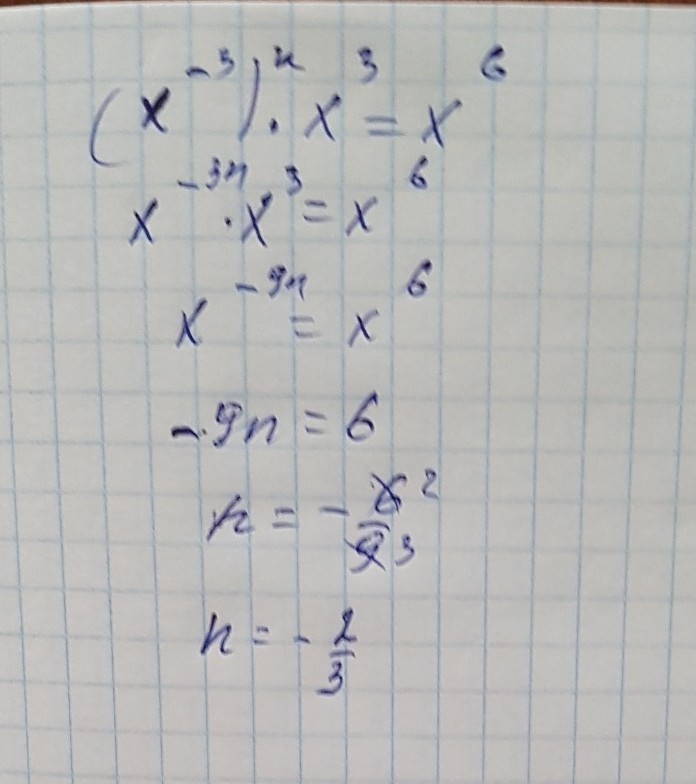 (x⁻³)ⁿ · x³ = x⁶
x⁻³ⁿ · x³ = x⁶
x⁻⁹ⁿ = x⁶
-9n = 6
n = -6/9 2/3
n = -2/3